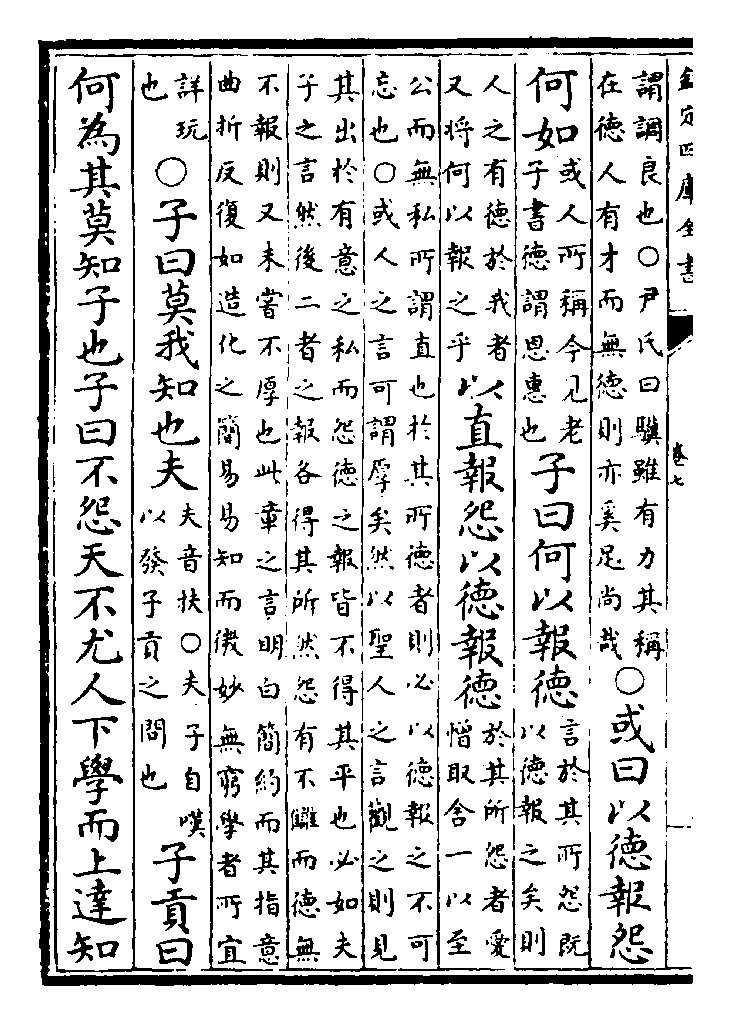 欽定四庫全書
卷七
謂調良也○尹氏曰驥雖有力其稱
在德人有才而無德則亦奚足尚哉
○或曰以德報怨
何如
或人所稱今見老
子書德謂恩惠也
子曰何以報德
言於其所怨既
以德報之矣則
人之有德於我者
又將何以報之乎
以直報怨以德報德
於其所怨者愛
憎取舍一以至
公而無私所謂直也於其所德者則必以德報之不可
忘也○或人之言可謂厚矣然以聖人之言觀之則見
其出於有意之私而怨德之報皆不得其平也必如夫
子之言然後二者之報各得其所然怨有不讎而德無
不報則又未嘗不厚也此章之言明白簡約而其指意
曲折反復如造化之簡易易知而微妙無窮學者所宜
詳玩
也
○子曰莫我知也夫
夫音扶○夫子自嘆
以發子貢之問也
子貢曰
何為其莫知子也子曰不怨天不尤人下學而上達知